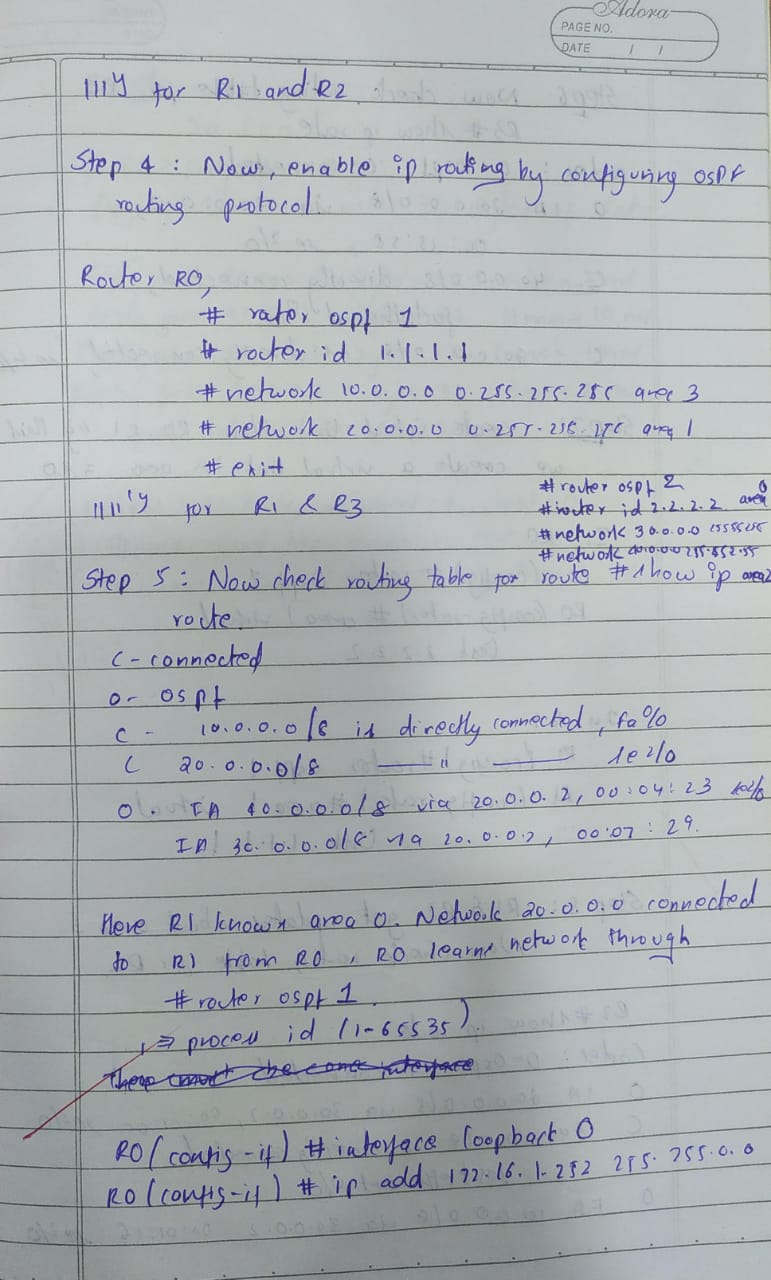 Adora
PAGE NO.
DATE / /
111ly for R1 and R2
Step 4 : Now, enable ip routing by configuring OSPF
routing protocol.
Router R0,
# rator ospf 1
# router id 1.1.1.1
# network 10.0.0.0 0.255.255.255 area 3
# network 20.0.0.0 0.255.255.255 area 1
# exit
111ly for R1 & R3
# router ospf 2
# router id 2.2.2.2 area 0
# network 30.0.0.0
# network
Step 5 : Now check routing table for route # show ip area 2
route.
C - connected
O - ospf
C - 10.0.0.0/8 is directly connected, fa0/0
C 20.0.0.0/8 —— " —— se2/0
O. IA 40.0.0.0/8 via 20.0.0.2, 00:04:23 se2/0
IA 30.0.0.0/8 via 20.0.0.2, 00:07:29.
Here R1 knows area 0. Network 20.0.0.0 connected
to R1 from R0, R0 learns network through
# router ospf 1.
↳ process id (1-65535)
There must be one interface
R0(config-if) # interface loopback 0
R0(config-if) # ip add 172.16.1.252 255.255.0.0